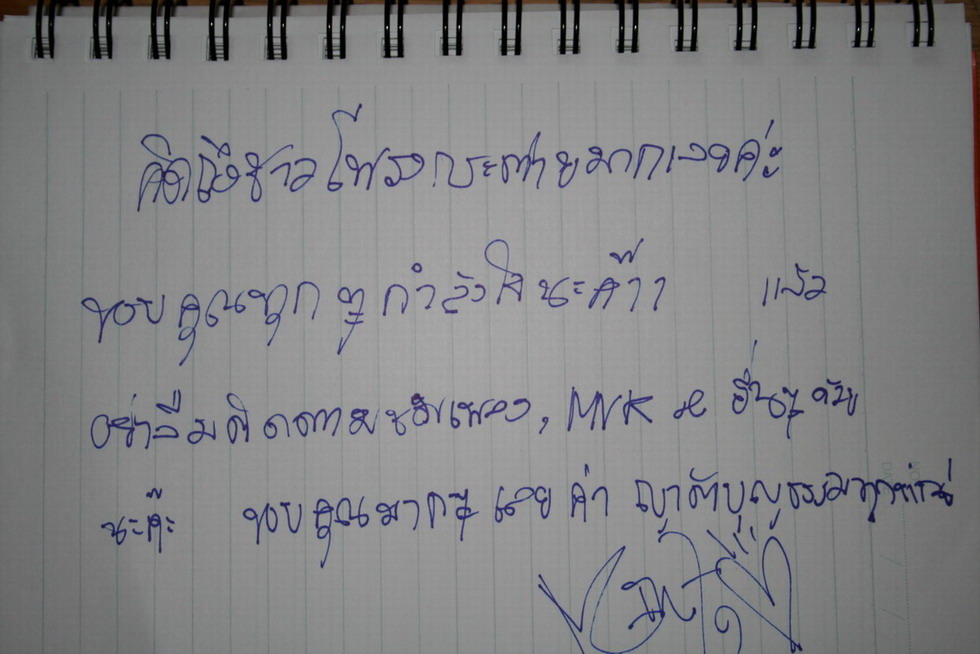 คิดถึงชาวโพรงกระต่ายมากเลยค่ะ
ขอบคุณทุกๆกำลังใจนะค๊าา แล้ว
อย่าลืมติดตามชมเพลง, MV อื่นๆด้วย
นะค๊ะ ขอบคุณมากๆ เลย ค่า ญาติบุญธรรมทุกท่าน